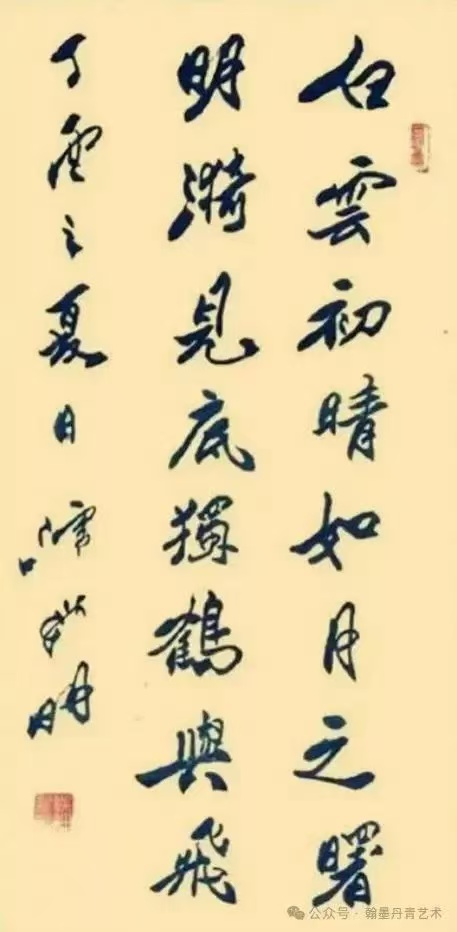 白雲初晴如月之曙
明漪見底獨鶴與飛
丁之夏日明
公众号 · 翰墨丹青艺术